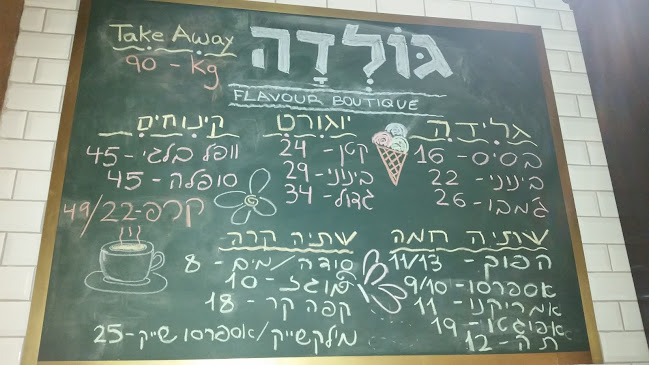 Take Away
90 - Kg
גּוֹלְדָה
FLAVOUR BOUTIQUE
גלידה
בסיס - 16
בינוני - 22
ג'מבו - 26
יוגורט
קטן - 24
בינוני - 29
גדול - 34
קינוחים
וופל בלגי - 45
סופלה - 45
קרפ - 49/22
שתיה חמה
הפוך - 11/13
אספרסו - 9/10
אמריקנו - 11
אפוגטו - 19
תה - 12
שתיה קרה
סודה/מים - 8
מוגז - 10
קפה קר - 18
מילקשייק/אספרסו שייק - 25